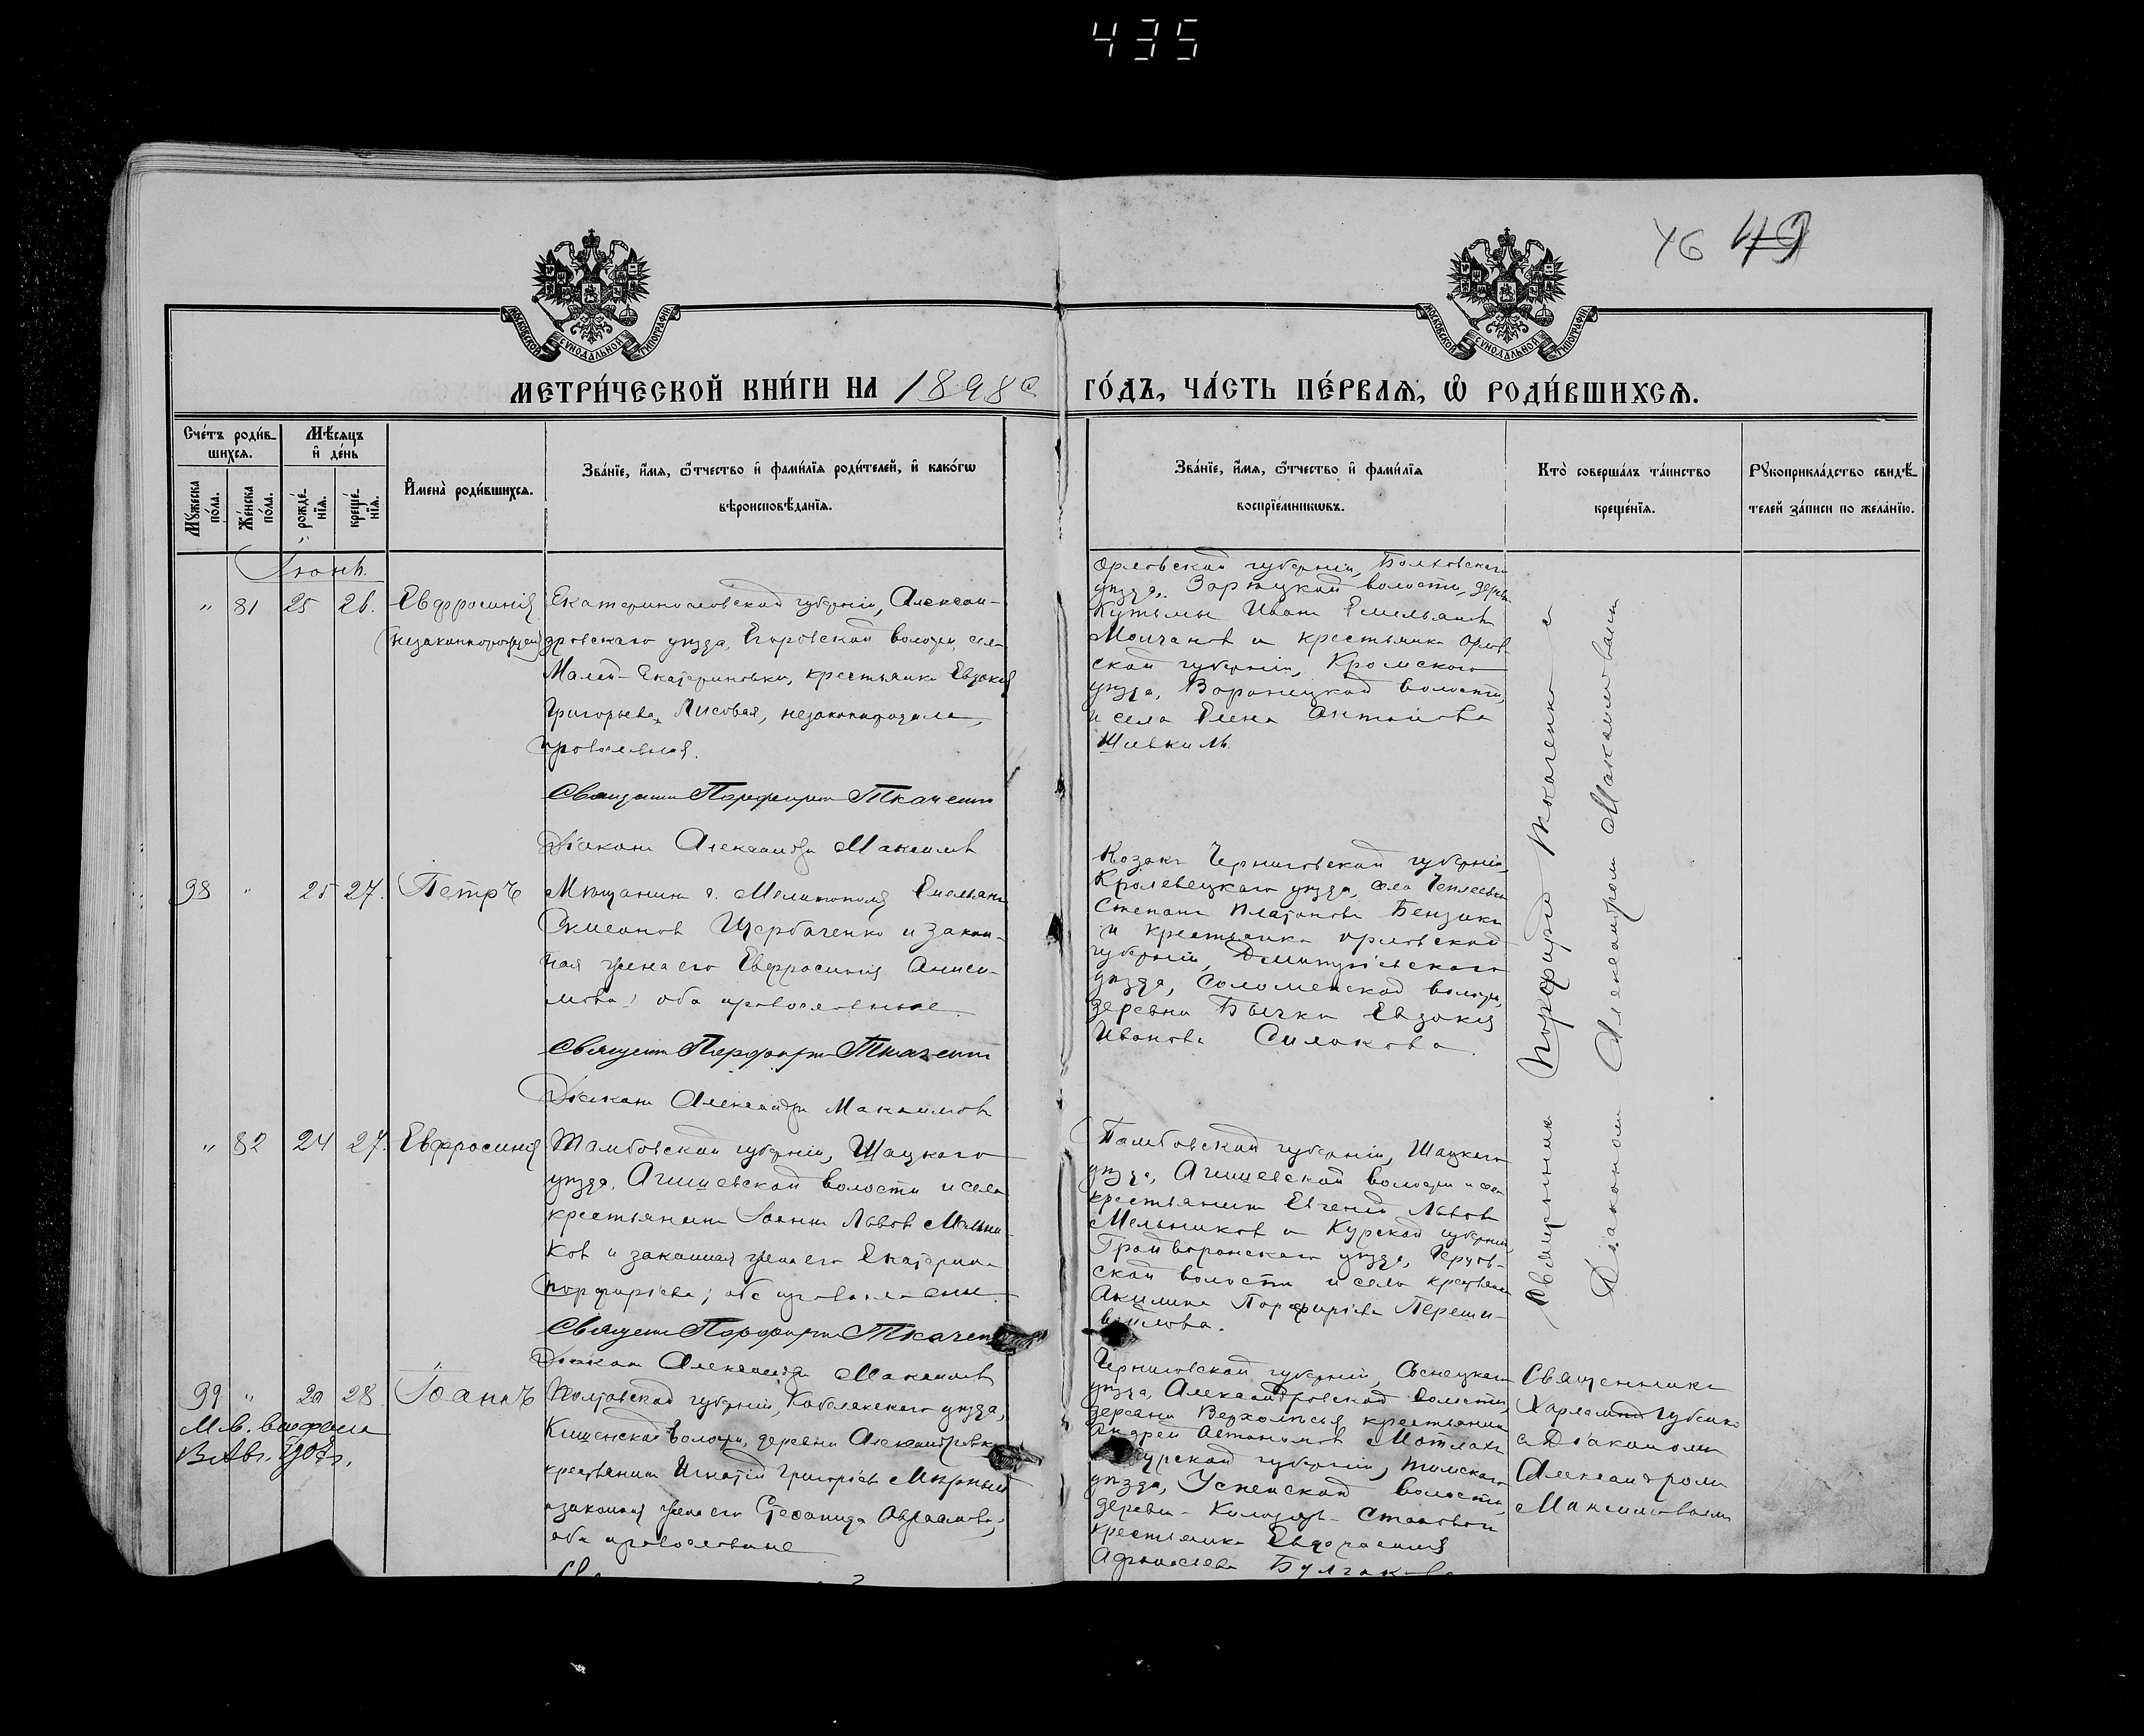 435
46 49
МОСКОВСКОЙ СѴНОДАЛЬНОЙ ТИПОГРАФІИ
МОСКОВСКОЙ СѴНОДАЛЬНОЙ ТИПОГРАФІИ
МЕТРИ́ЧЕСКОЙ КНИ́ГИ НА 1898
ГО́ДЪ, ЧА́СТЬ ПЕ́РВАѦ, Ѡ҆ РОДИ́ВШИХСѦ.
Сче́тъ роди́в-
шихсѧ.
Мѣ́сѧцъ
и҆ де́нь
Мꙋ́жеска
по́ла.
Же́нска
по́ла.
рожде́-
нїѧ.
креще́-
нїѧ.
И҆мена̀ роди́вшихсѧ.
Зва́нїе, и҆́мѧ, ѻ҆́тчество и҆ фами́лїѧ роди́телей, и҆ како́гѡ
вѣроисповѣ́данїѧ.
Зва́нїе, и҆́мѧ, ѻ҆́тчество и҆ фами́лїѧ
воспрїе́мникѡвъ.
Кто̀ соверша́лъ та́инство
креще́нїѧ.
Рꙋкоприкла́дство свидѣ́-
телей за́писи по жела́нїю.
Іюнь.
" 81 25 26. Евфросинія
(незаконнорожден)
Екатеринославской губерніи, Алексан-
дровскаго уѣзда, Егоровской волости, села
Малой-Екатериновки, крестьянка Евдокія
Григорьева Лисовая, незаконнородила,
православная.
Священн Порфирій Ткаченко
Діаконъ Александръ Максимовъ
Орловской губерніи, Болховскаго
уѣзда, волости, дерев
Иванъ Емельяновъ
Молчановъ и крестьянка Орлов-
ской губерніи, Кромского
уѣзда, Воронецкой волости,
и села Елена Антонова
98 " 25 27. Петръ
Мѣщанинъ г. Мелитополя Емельянъ
Симеоновъ Щербаченко и закон-
ная жена его Евфросинія Аниси-
мова; оба православные.
Священн Порфирій Ткаченко
Діаконъ Александръ Максимовъ
Козакъ Черниговской губерніи,
Кролевецкаго уѣзда, села
Степанъ Платоновъ
и крестьянка Орловской
губерніи, Дмитріевскаго
уѣзда, волости,
деревни Бычки Евдокія
Иванова Силакова.
" 82 24 27. Евфросинія
Тамбовской губерніи, Шацкаго
уѣзда, Агишевской волости и села
крестьянинъ Іоаннъ Львовъ Мельни-
ковъ и законная жена его Екатерина
Порфиріева; оба православные.
Священн Порфирій Ткаченко
Діаконъ Александръ Максимовъ
Тамбовской губерніи, Шацкаго
уѣзда, Агишевской волости и села
крестьянинъ Евгеній Львовъ
Мельниковъ и Курской губерніи,
Грайворонскаго уѣзда,
ской волости и села крестьянка
Акилина Порфиріева
Священникъ Порфирій Ткаченко с
Діакономъ Александромъ Максимовымъ
99 " 20 28. Іоаннъ
М. в. выдана
В Авг. 1907 г.
Полтавской губерніи, Кобелякскаго уѣзда,
Кишенской волости, деревни Александровки
крестьянинъ Игнатій Григоріевъ Мирный
и законная жена его Стефанида Авраамова;
оба православные
Черниговской губерніи, Сосницкаго
уѣзда, Александровской волости,
деревни Верхолѣсья, крестьянинъ
Андрей
Курской губерніи, Тимскаго
уѣзда, Успенской волости,
деревни
крестьянка Евфросинія
Афанасіева Булгакова
Священникъ
Харлампій Губенко
с Діакономъ
Александромъ
Максимовымъ